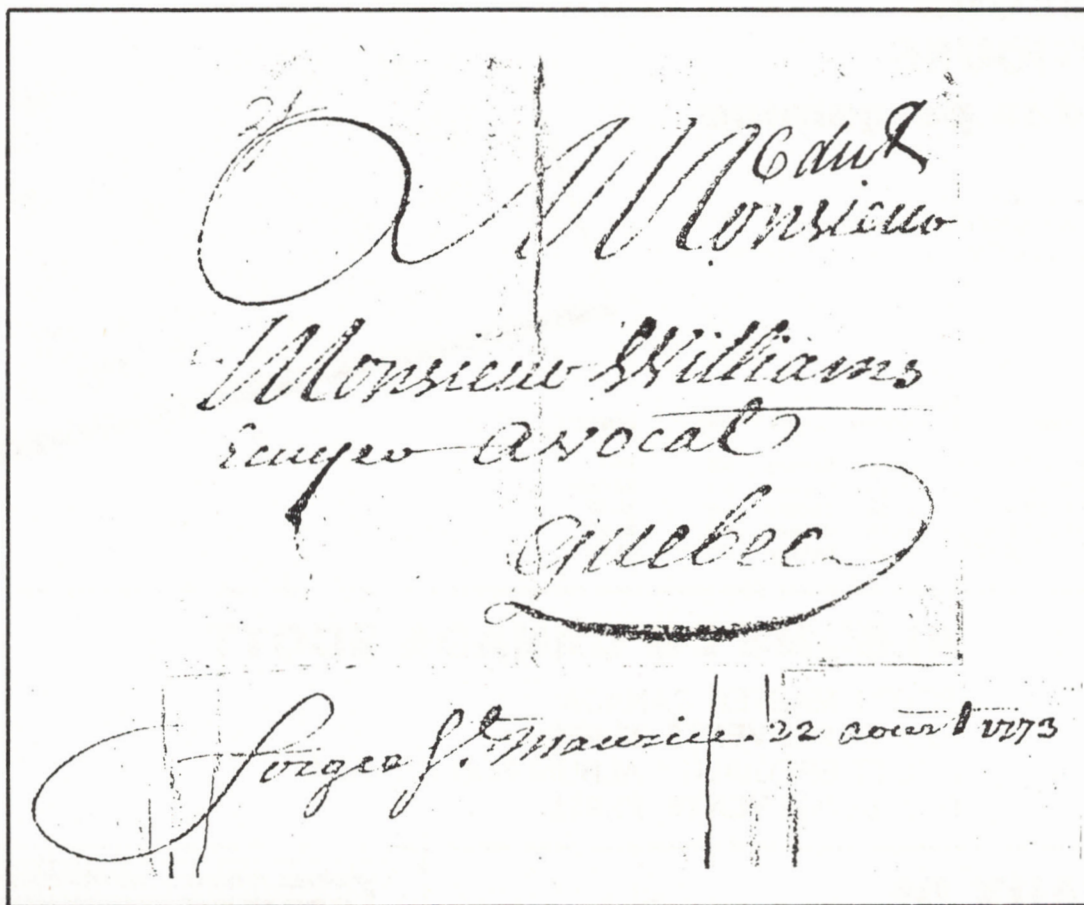 A Monsieur
Monsieur Williams
Ecuyer avocat
quebec
forges St. maurice. 22 aoust 1773